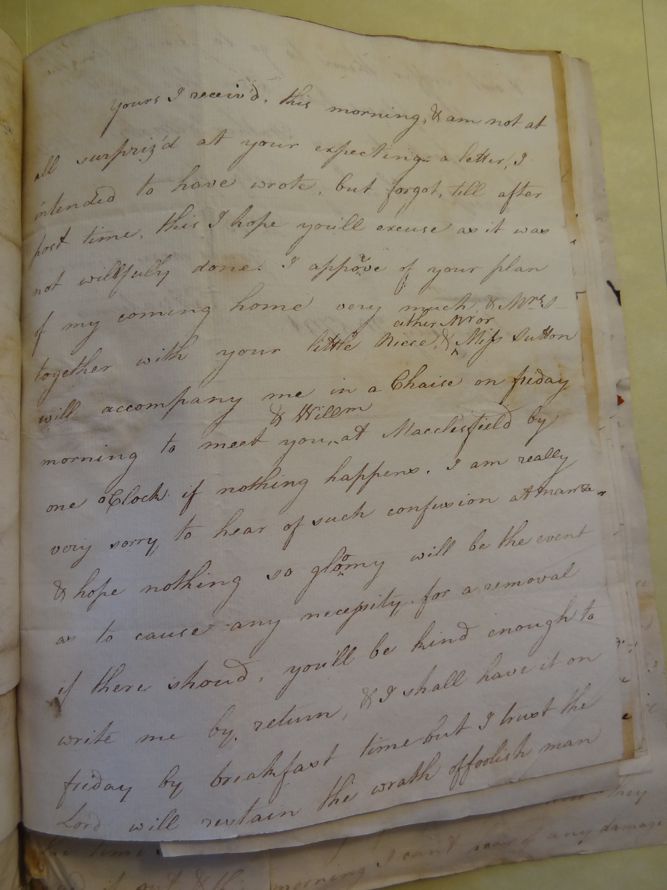 yours I receiv'd, this morning, & am not at
all surpriz'd at your expecting a letter, I
intended to have wrote, but forgot, till after
post time, this I hope you'll excuse as it was
not willfully done. I approve of your plan
of my coming home very much & Mrs S
together with your little Niece, & either Mr or Miss Sutton
will accompany me in a Chaise on friday
morning to meet you & Willm at Macclesfield by
one oClock if nothing happens. I am really
very sorry to hear of such confusion at
& hope nothing so gloomy will be the event
as to cause any necessity for a removal
if there shoud, you'll be kind enough to
write me by, return, & I shall have it on
friday by breakfast time but I trust the
Lord will restain the wrath of foolish man
they
it out & the morning I can't of any damage